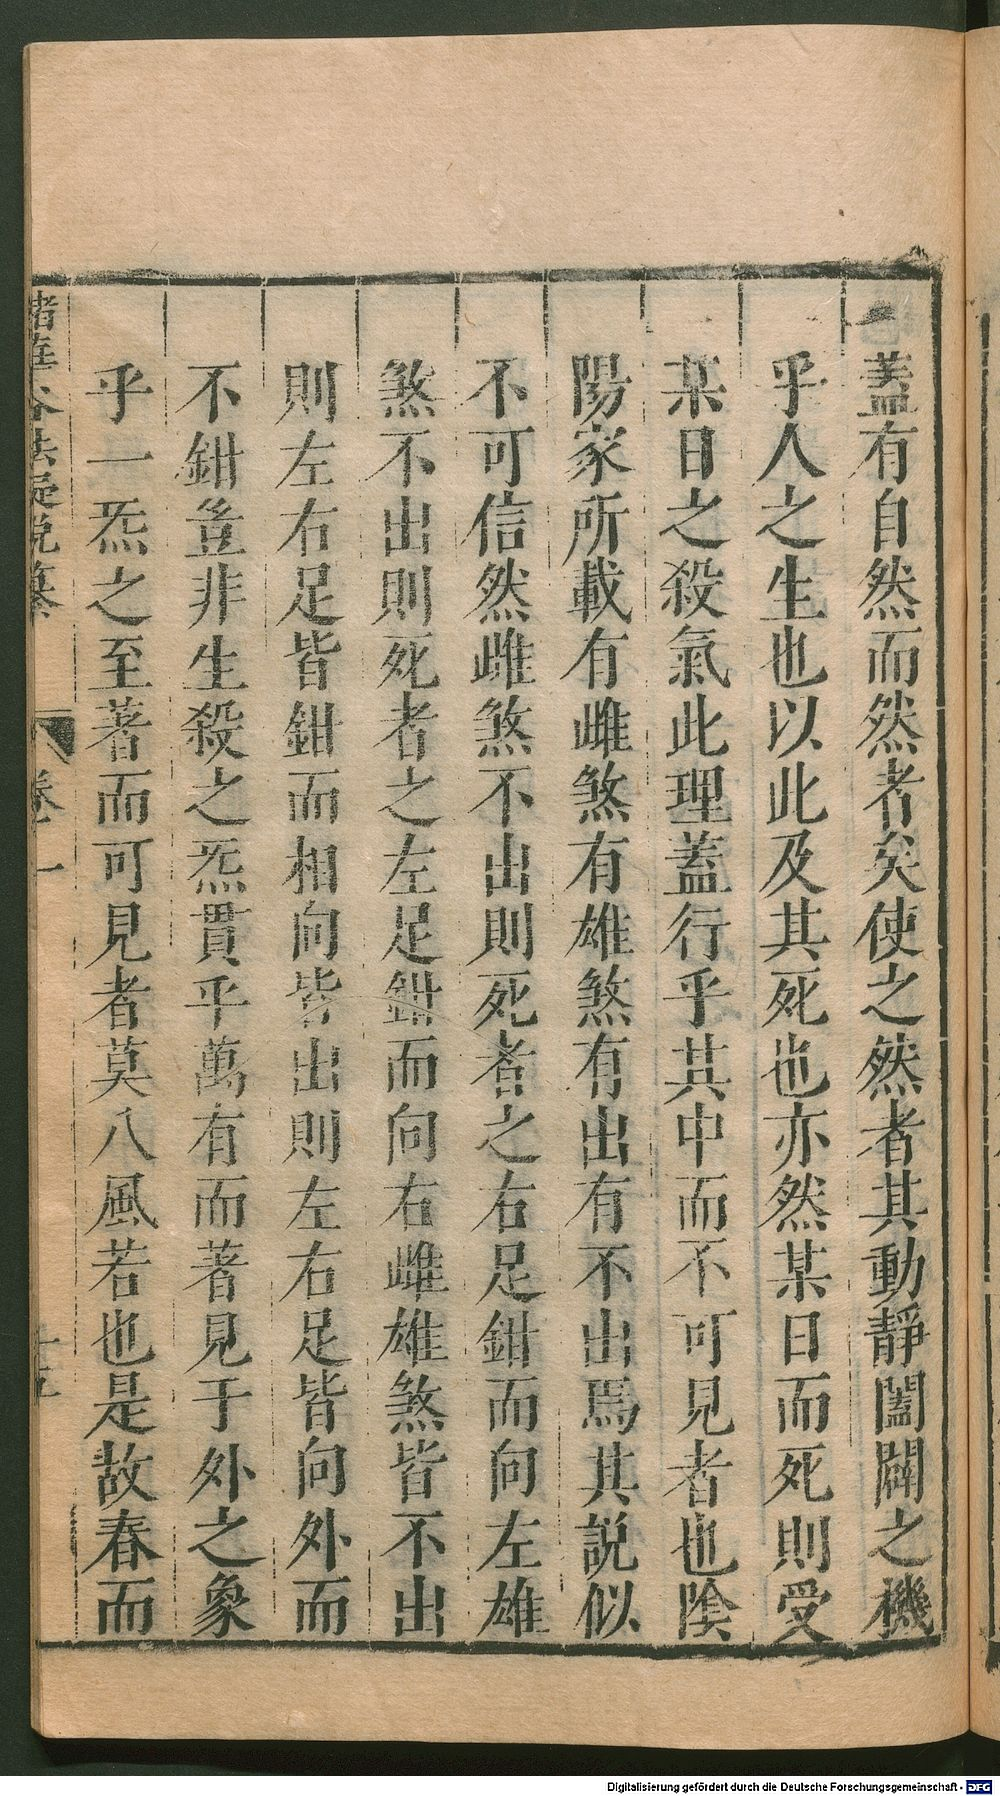 蓋有自然而然者矣使之然者其動靜闔闢之機
乎人之生也以此及其死也亦然某日而死則受
某日之殺氣此理蓋行乎其中而不可見者也陰
陽家所載有雌煞有雄煞有出有不出焉其說似
不可信然雌煞不出則死者之右足鉗而向左雄
煞不出則死者之左足鉗而向右雌雄煞皆不出
則左右足皆鉗而相向皆出則左右足皆向外而
不鉗豈非生殺之炁貫乎萬有而著見于外之象
乎一炁之至著而可見者莫八風若也是故春而
卷一
十五
Digitalisierung gefördert durch die Deutsche Forschungsgemeinschaft - DFG